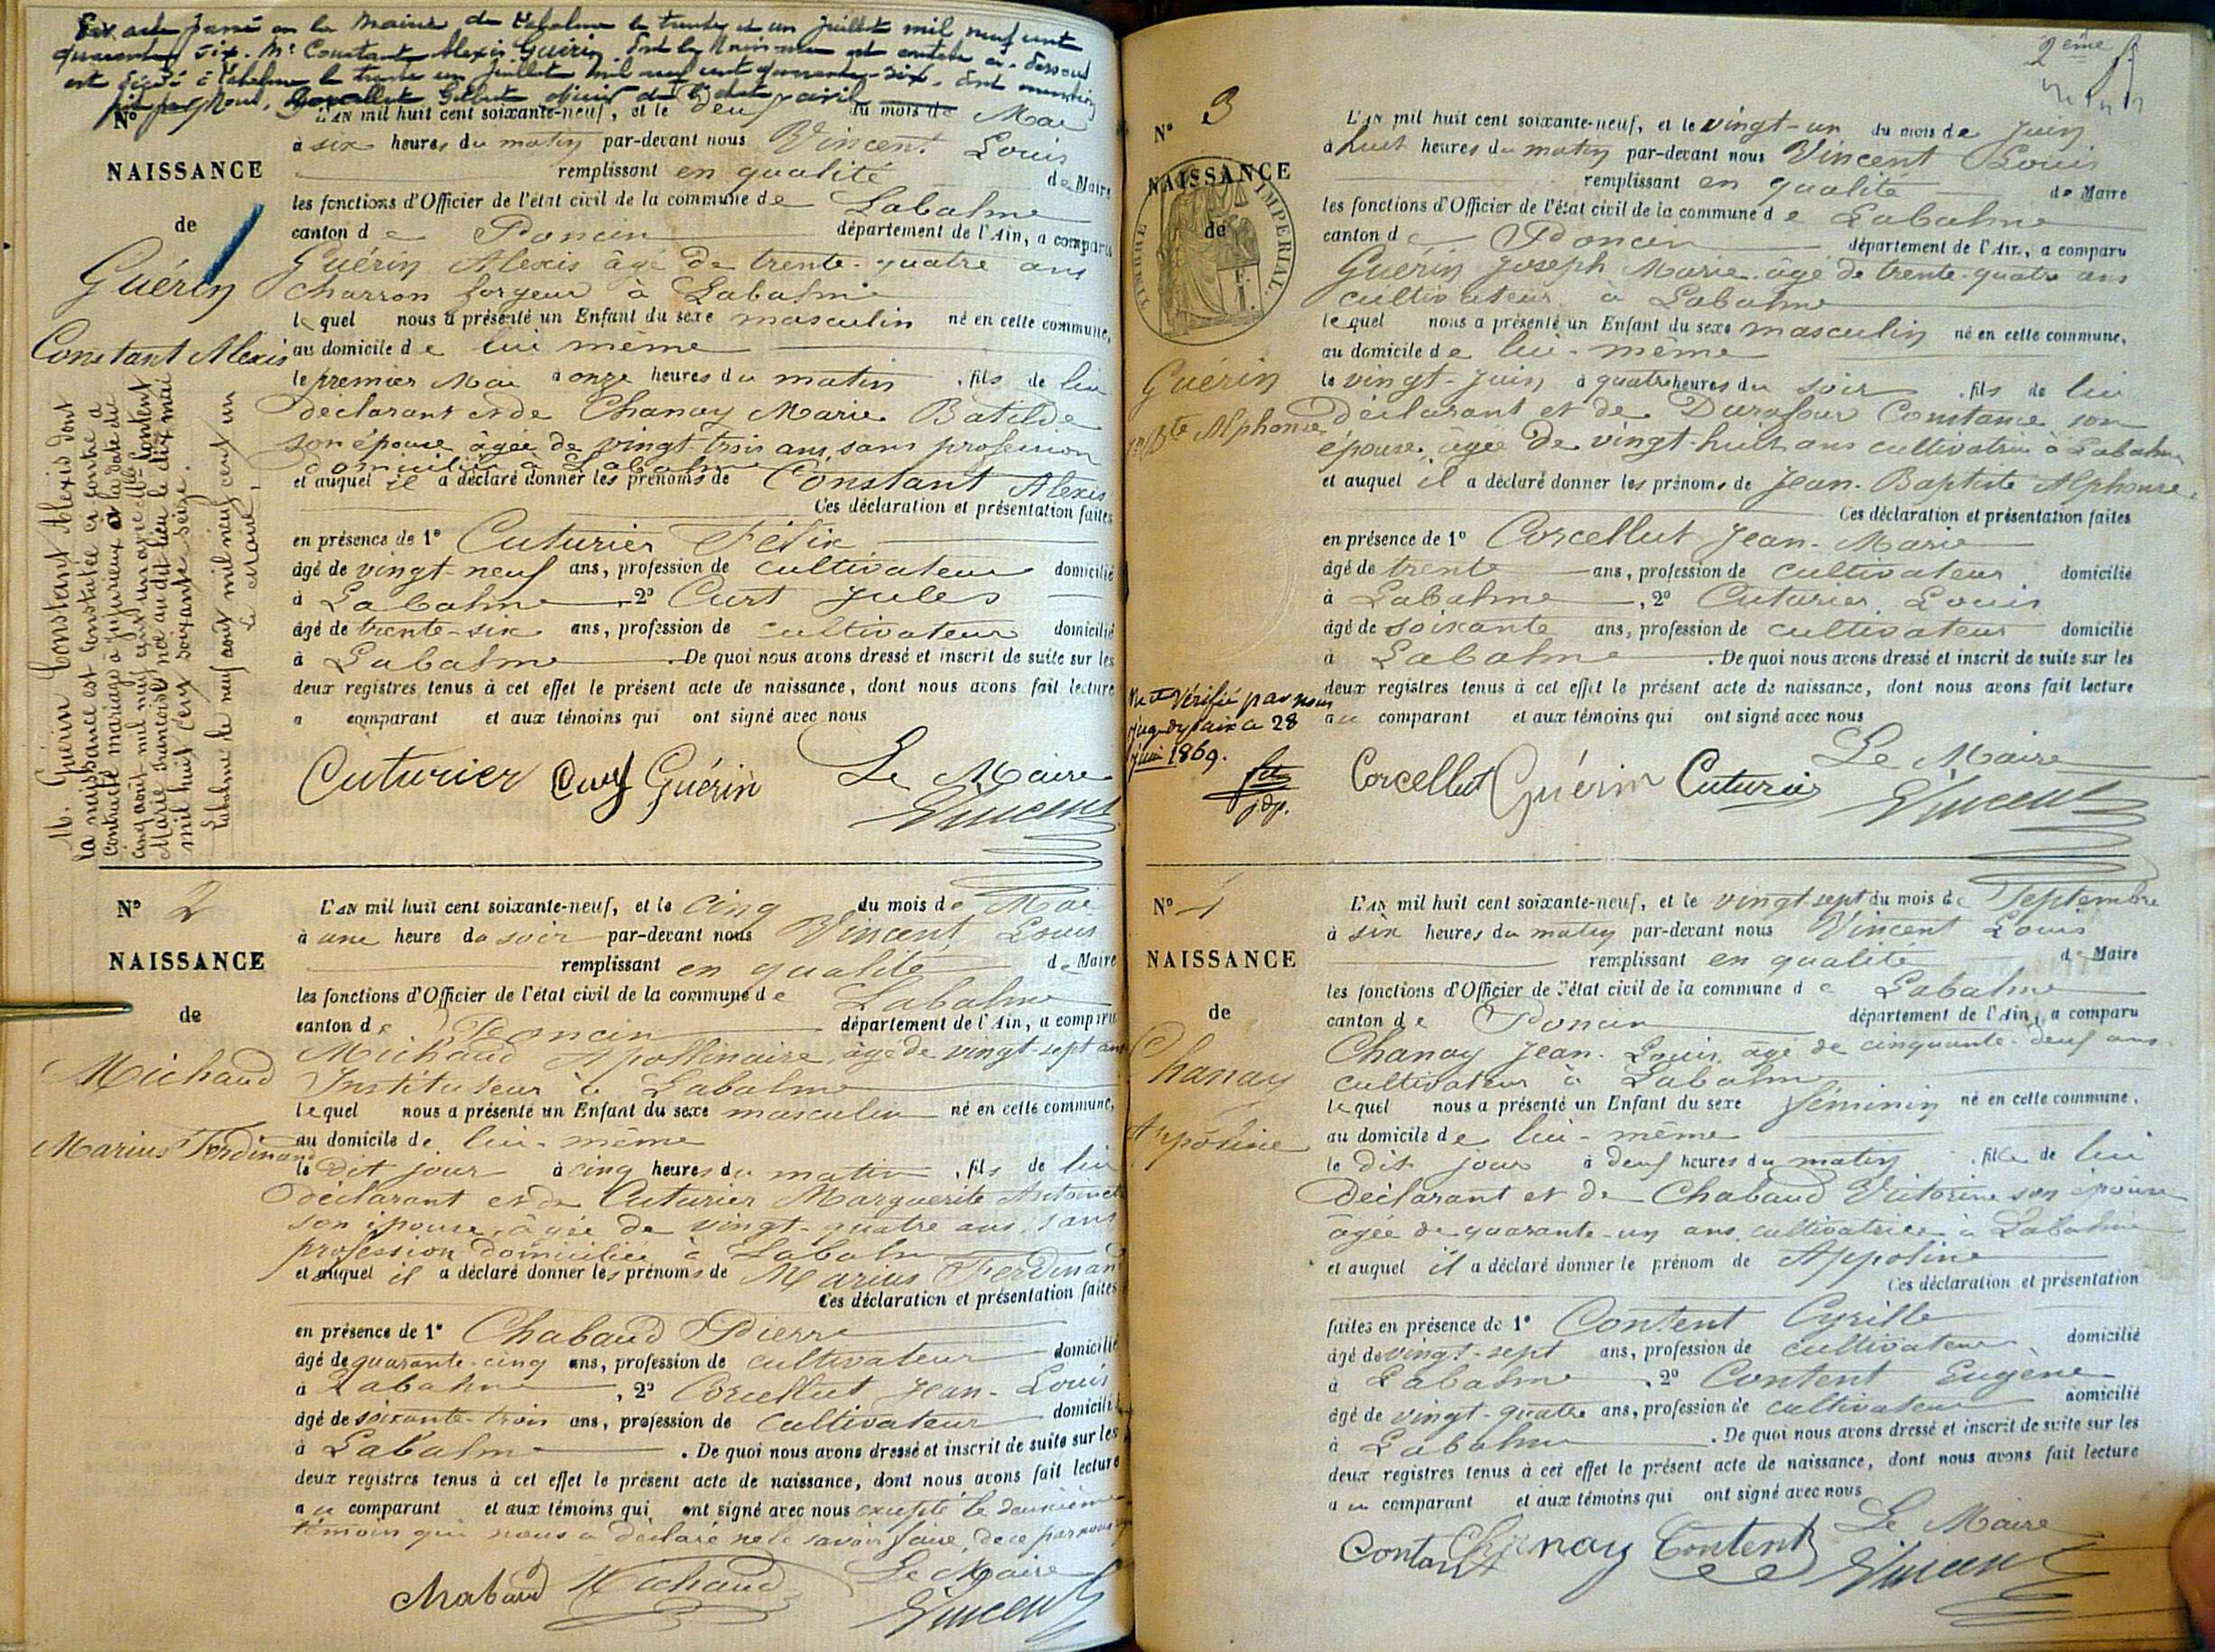 Par acte passé en la Mairie de Labalme le trente et un juillet mil neuf cent
quarante six. Mr Constant Alexis Guérin dont la Naissance est contatée ci-dessous
est décédé à Labalme le trente un juillet mil neuf cent quarante-six. dont mention
fait par Nous, Corcellut Gilbert officier de l'état civil
N°
NAISSANCE
de
Guérin
Constant Alexis
M. Guérin Constant Alexis dont
la naissance est constatée ci contre a
contracté mariage à Jujurieux à la date du
cinq août mil neuf cent un avec Mlle Content
Marie Francoise née au dit lieu le dix mai
mil huit cent soixante seize.
Labalme le neuf août mil neuf cent un
Le Maire,
L'AN mil huit cent soixante-neuf, et le deux du mois de Mai
à six heures du matin par-devant nous Vincent Louis
remplissant en qualité de Maire
les fonctions d'Officier de l'état civil de la commune de Labalme
canton de Poncin département de l'Ain, a comparu
Guérin Alexis âgé de trente-quatre ans
charron forgeur à Labalme
lequel nous a présenté un Enfant du sexe masculin né en cette commune,
au domicile de lui même
le premier Mai à onze heures du matin, fils de lui
déclarant et de Chanay Marie Batilde
son épouse âgée de vingt-trois ans, sans profession
domiciliée à Labalme
et auquel il a déclaré donner les prénoms de Constant Alexis
Ces déclaration et présentation faites
en présence de 1° Cuturier Félix
âgé de vingt-neuf ans, profession de cultivateur domicilié
à Labalme 2° Curt Jules
âgé de trente-six ans, profession de cultivateur domicilié
à Labalme. De quoi nous avons dressé et inscrit de suite sur les
deux registres tenus à cet effet le présent acte de naissance, dont nous avons fait lecture
a comparant et aux témoins qui ont signé avec nous
Cuturier Curt Guérin Le Maire
Vincent
N° 2
NAISSANCE
de
Michaud
Marius Ferdinand
L'AN mil huit cent soixante-neuf, et le cinq du mois de Mai
à une heure du soir par-devant nous Vincent Louis
remplissant en qualité de Maire
les fonctions d'Officier de l'état civil de la commune de Labalme
canton de Poncin département de l'Ain, a comparu
Michaud Apollinaire, âgé de vingt-sept ans
Instituteur à Labalme
lequel nous a présenté un Enfant du sexe masculin né en cette commune,
au domicile de lui-même
le dit jour à cinq heures du matin, fils de lui
déclarant et de Cuturier Marguerite Antoinette
son épouse, âgée de vingt-quatre ans, sans
profession domiciliée à Labalme
et auquel il a déclaré donner les prénoms de Marius Ferdinand
Ces déclaration et présentation faites
en présence de 1° Chabaud Pierre
âgé de quarante-cinq ans, profession de cultivateur domicilié
à Labalme, 2° Corcellut Jean-Louis
âgé de soixante-trois ans, profession de cultivateur domicilié
à Labalme. De quoi nous avons dressé et inscrit de suite sur les
deux registres tenus à cet effet le présent acte de naissance, dont nous avons fait lecture
au comparant et aux témoins qui ont signé avec nous excepté le deuxième
témoin qui nous a déclaré ne le savoir faire, de ce par nous
Chabaud Michaud Le Maire
Vincent
2ème f.
N° 3
NAISSANCE
de
TIMBRE IMPERIAL
Guérin
Jn Bte Alphonse
L'AN mil huit cent soixante-neuf, et le vingt-un du mois de Juin
à huit heures du matin par-devant nous Vincent Louis
remplissant en qualité de Maire
les fonctions d'Officier de l'état civil de la commune de Labalme
canton de Poncin département de l'Ain, a comparu
Guérin Joseph Marie âgé de trente-quatre ans
cultivateur à Labalme
lequel nous a présenté un Enfant du sexe masculin né en cette commune,
au domicile de lui-même
le vingt-Juin à quatre heures du soir, fils de lui
déclarant et de Durafour Constance son
épouse, âgée de vingt-huit ans cultivatrice à Labalme
et auquel il a déclaré donner les prénoms de Jean-Baptiste Alphonse.
Ces déclaration et présentation faites
en présence de 1° Corcellut Jean-Marie
âgé de trente ans, profession de cultivateur domicilié
à Labalme, 2° Cuturier Louis
âgé de soixante ans, profession de cultivateur domicilié
à Labalme. De quoi nous avons dressé et inscrit de suite sur les
deux registres tenus à cet effet le présent acte de naissance, dont nous avons fait lecture
au comparant et aux témoins qui ont signé avec nous
Vérifié par nous
juge de paix ce 28
juin 1869.
j.d.p.
Corcellut Guérin Cuturier Le Maire
Vincent
N°
NAISSANCE
de
Chanay
Appoline
L'AN mil huit cent soixante-neuf, et le vingt-sept du mois de Septembre
à six heures du matin par-devant nous Vincent Louis
remplissant en qualité de Maire
les fonctions d'Officier de l'état civil de la commune de Labalme
canton de Poncin département de l'Ain, a comparu
Chanay Jean-Louis, âgé de cinquante-deux ans
cultivateur à Labalme
lequel nous a présenté un Enfant du sexe féminin né en cette commune.
au domicile de lui-même
le dit jour à deux heures du matin, fille de lui
déclarant et de Chabaud Victorine son épouse
âgée de quarante-un ans, cultivatrice à Labalme
et auquel il a déclaré donner le prénom de Appoline
Ces déclaration et présentation
faites en présence de 1° Content Cyrille
âgé de vingt-sept ans, profession de cultivateur domicilié
à Labalme, 2° Content Eugène
âgé de vingt-quatre ans, profession de cultivateur domicilié
à Labalme. De quoi nous avons dressé et inscrit de suite sur les
deux registres tenus à cet effet le présent acte de naissance, dont nous avons fait lecture
au comparant et aux témoins qui ont signé avec nous
Content Chanay Content Le Maire
Vincent